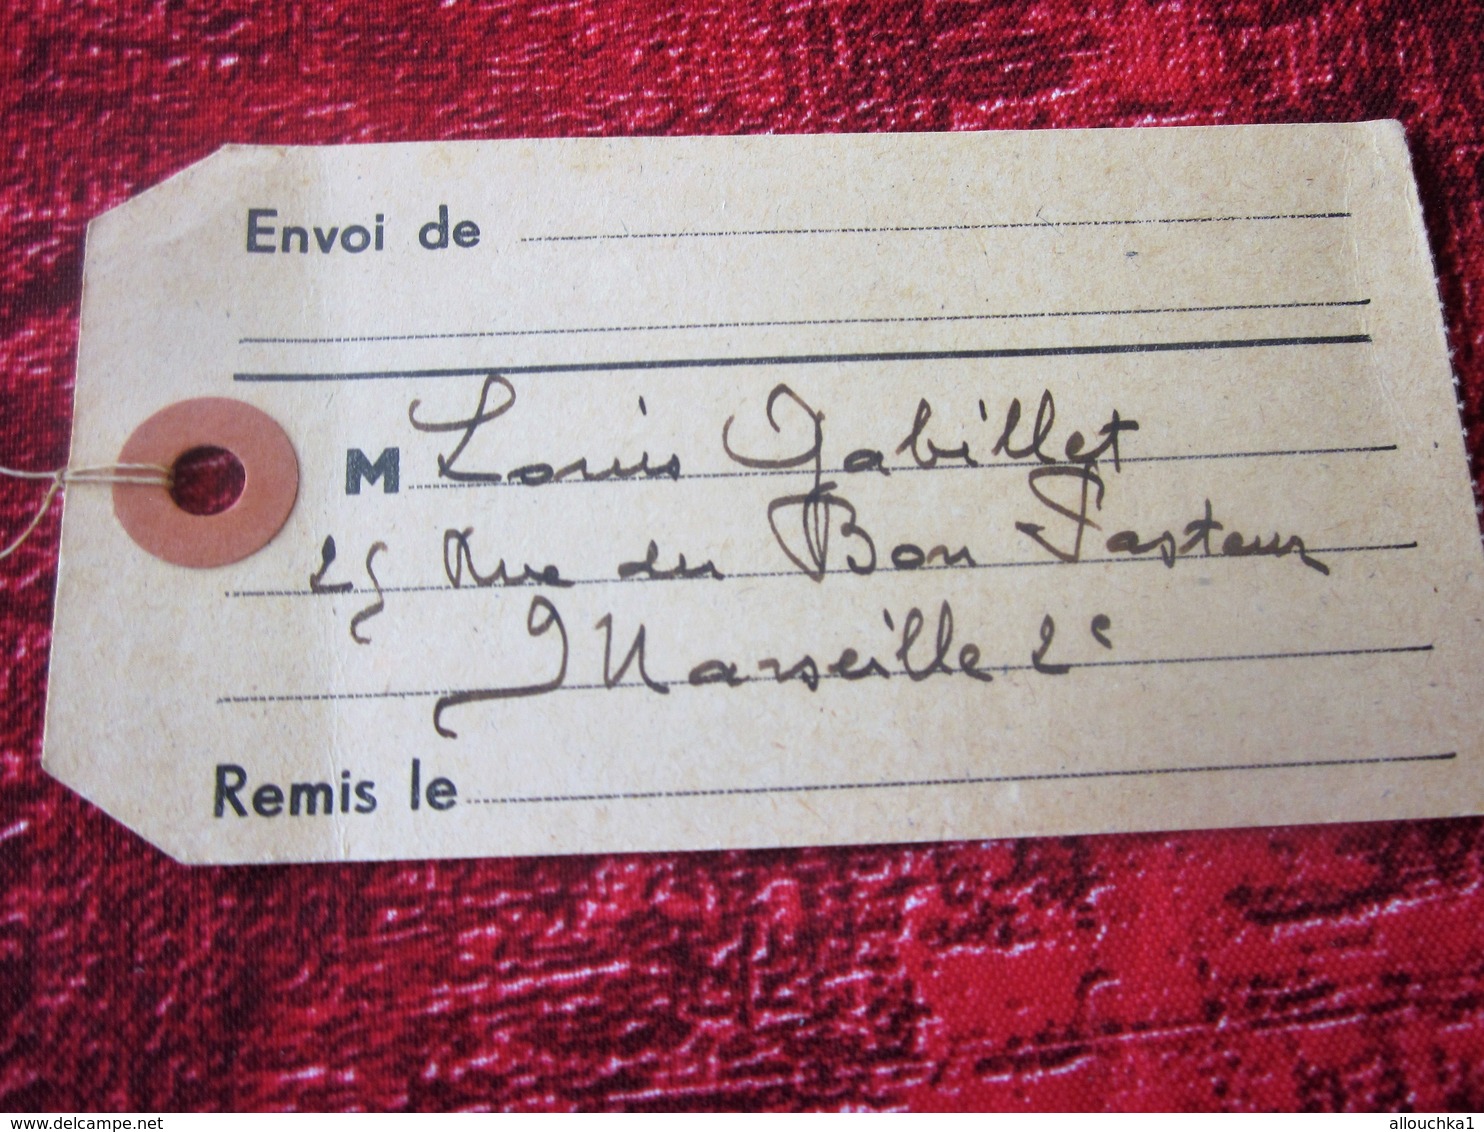 Envoi de
M Louis Gabillet
25 Rue du Bon Pasteur
Marseille 2e
Remis le
www.delcampe.net
allouchka1